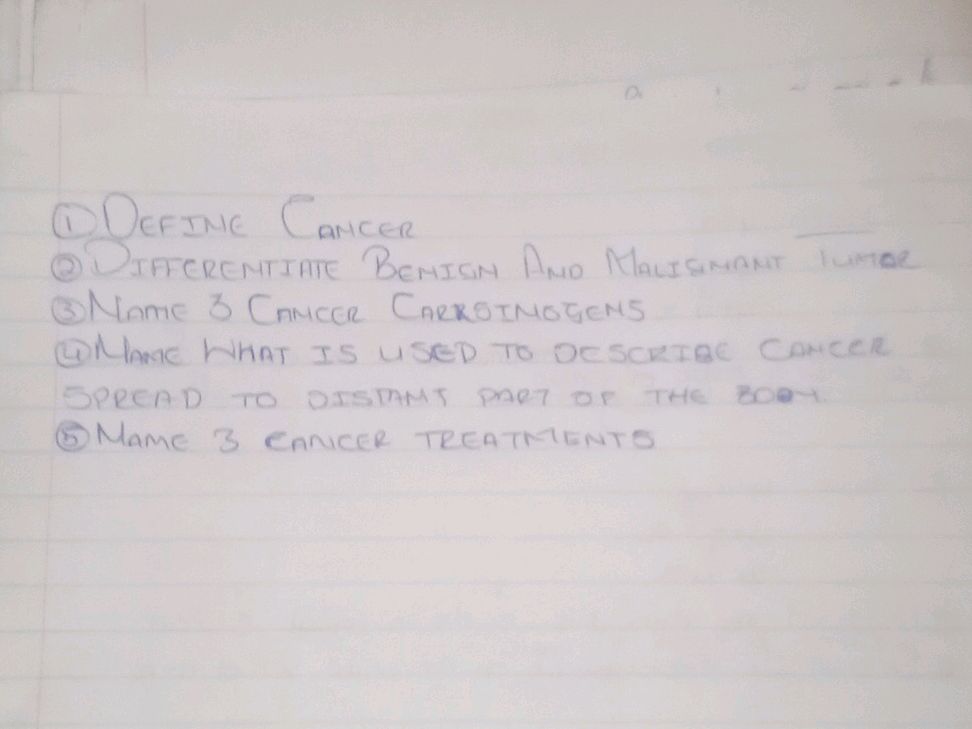 ① DEFINE CANCER
② DIFFERENTIATE BENIGN AND MALIGNANT TUMOR
③ NAME 3 CANCER CARRSINOGENS
④ NAME WHAT IS USED TO DESCRIBE CANCER
SPREAD TO DISTANT PART OF THE BODY.
⑤ NAME 3 CANCER TREATMENTS